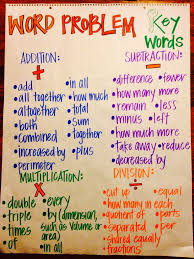 WORD PROBLEM
Key Words
ADDITION:
+
•add •in all
•all together •how much
•altogether •total
•both •sum
•combined •together
•increased by •plus
•perimeter
SUBTRACTION:
-
•difference •fewer
•how many more
•how much more
•less •remain
•minus •left
•take away •reduce
•decreased by
MULTIPLICATION:
x
•double •every
•triple •by (dimension,
•times such as volume or
•of area)
•in all
DIVISION:
÷
•cut up •equal
•how many in each
•quotient of •parts
•separated •per
•shared equally
•fractions